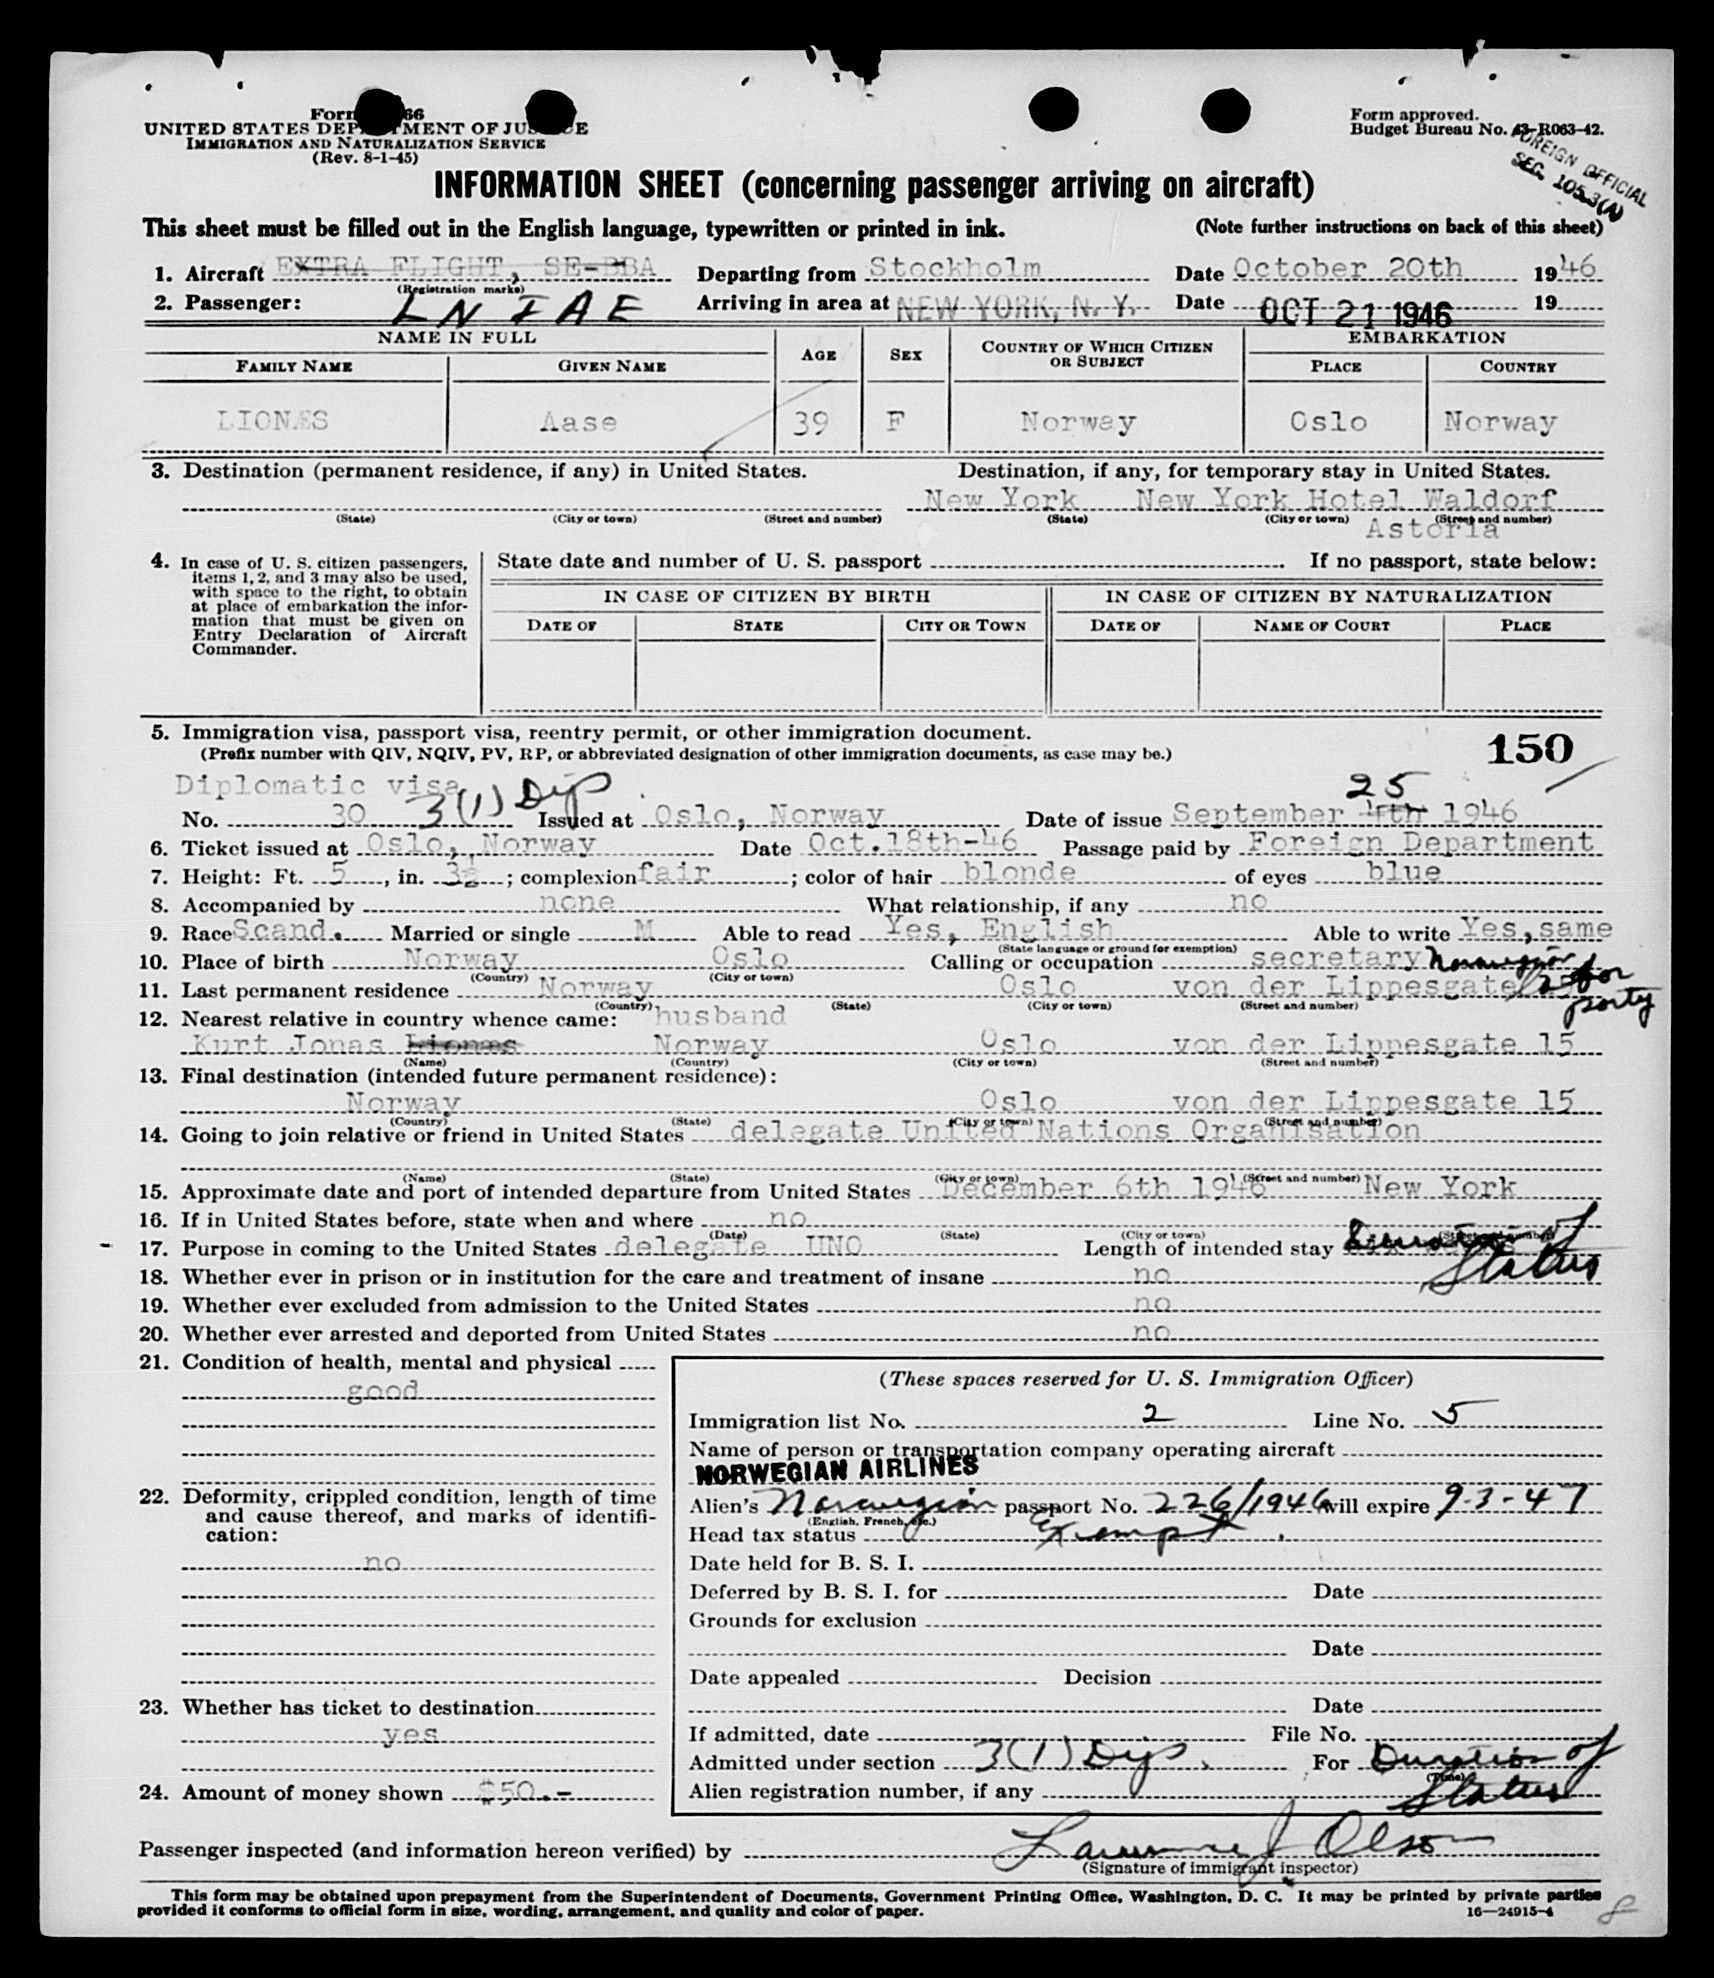 Form 66
UNITED STATES DEPARTMENT OF JUSTICE
IMMIGRATION AND NATURALIZATION SERVICE
(Rev. 8-1-45)
Form approved.
Budget Bureau No. 43-R063-42.
FOREIGN OFFICIAL
SEC. 105.3(A)
INFORMATION SHEET (concerning passenger arriving on aircraft)
This sheet must be filled out in the English language, typewritten or printed in ink. (Note further instructions on back of this sheet)
1. Aircraft EXTRA FLIGHT, SE-BBA Departing from Stockholm Date October 20th 1946
(Registration marks)
2. Passenger: LN IAE Arriving in area at NEW YORK, N. Y. Date OCT 21 1946 19
NAME IN FULL AGE SEX COUNTRY OF WHICH CITIZEN OR SUBJECT EMBARKATION
FAMILY NAME GIVEN NAME PLACE COUNTRY
LIONÆS Aase 39 F Norway Oslo Norway
3. Destination (permanent residence, if any) in United States. Destination, if any, for temporary stay in United States.
New York New York Hotel Waldorf
(State) (City or town) (Street and number) (State) (City or town) (Street and number)
Astoria
4. In case of U. S. citizen passengers, items 1, 2, and 3 may also be used, with space to the right, to obtain at place of embarkation the information that must be given on Entry Declaration of Aircraft Commander.
State date and number of U. S. passport If no passport, state below:
IN CASE OF CITIZEN BY BIRTH IN CASE OF CITIZEN BY NATURALIZATION
DATE OF STATE CITY OR TOWN DATE OF NAME OF COURT PLACE
5. Immigration visa, passport visa, reentry permit, or other immigration document.
(Prefix number with QIV, NQIV, PV, RP, or abbreviated designation of other immigration documents, as case may be.) 150
Diplomatic visa 25
No. 30 3(1) Dip Issued at Oslo, Norway Date of issue September 4th 1946
6. Ticket issued at Oslo, Norway Date Oct.18th-46 Passage paid by Foreign Department
7. Height: Ft. 5, in. 3½; complexion fair; color of hair blonde of eyes blue
8. Accompanied by none What relationship, if any no
9. Race Scand. Married or single M Able to read Yes, English Able to write Yes, same
(State language or ground for exemption)
10. Place of birth Norway Oslo Calling or occupation secretary Norwegian
(Country) (City or town)
11. Last permanent residence Norway Oslo von der Lippesgate for party
(Country) (State) (City or town) (Street and number)
12. Nearest relative in country whence came: husband
Kurt Jonas Lionæs Norway Oslo von der Lippesgate 15
(Name) (Country) (City or town) (Street and number)
13. Final destination (intended future permanent residence):
Norway Oslo von der Lippesgate 15
(Country) (State) (City or town) (Street and number)
14. Going to join relative or friend in United States delegate United Nations Organisation
(Name) (State) (City or town) (Street and number)
15. Approximate date and port of intended departure from United States December 6th 1946 New York
16. If in United States before, state when and where no
(Date) (State) (City or town) (Street and number)
17. Purpose in coming to the United States delegate UNO Length of intended stay Duration of Status
18. Whether ever in prison or in institution for the care and treatment of insane no
19. Whether ever excluded from admission to the United States no
20. Whether ever arrested and deported from United States no
21. Condition of health, mental and physical
good
22. Deformity, crippled condition, length of time and cause thereof, and marks of identification:
no
23. Whether has ticket to destination
yes
24. Amount of money shown $50.-
(These spaces reserved for U. S. Immigration Officer)
Immigration list No. 2 Line No. 5
Name of person or transportation company operating aircraft
NORWEGIAN AIRLINES
Alien's Norwegian passport No. 226/1946 will expire 9-3-47
(English, French, etc.)
Head tax status Exempt.
Date held for B. S. I.
Deferred by B. S. I. for Date
Grounds for exclusion
Date
Date appealed Decision
Date
If admitted, date File No.
Admitted under section 3(1) Dip. For Duration of Status
(Time)
Alien registration number, if any
Passenger inspected (and information hereon verified) by Lawrence J Olson
(Signature of immigrant inspector)
This form may be obtained upon prepayment from the Superintendent of Documents, Government Printing Office, Washington, D. C. It may be printed by private parties
provided it conforms to official form in size, wording, arrangement, and quality and color of paper. 16—24915-4